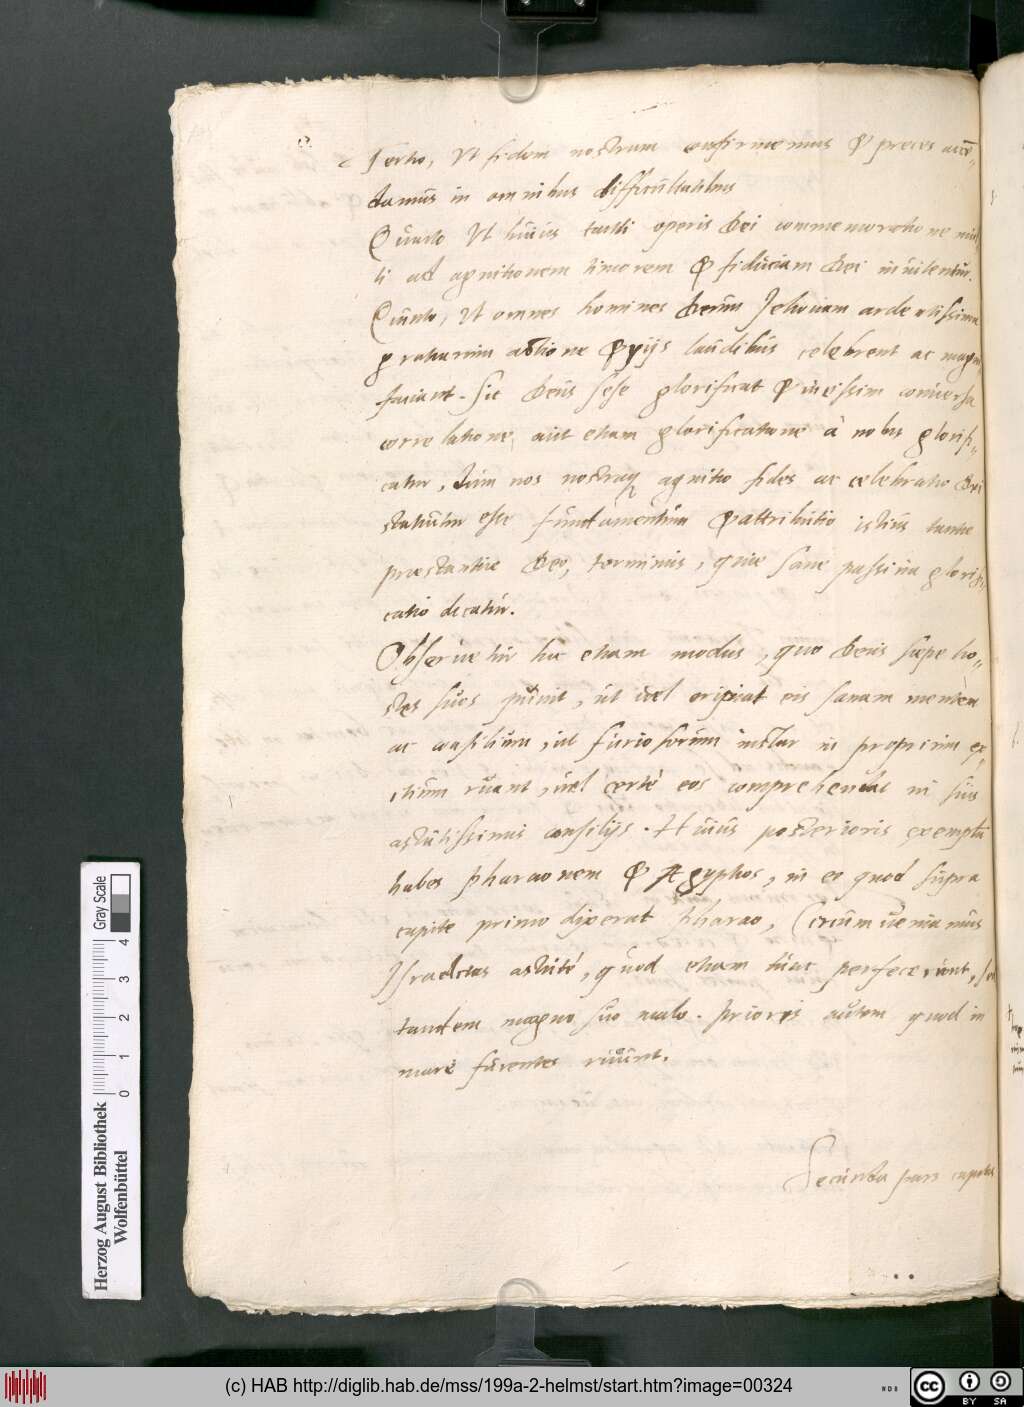 Tertio, Ut fidem nostram confirmemus & preces accē-
damus in omnibus difficultatibus
Quarto Ut huius tanti operis Dei commemoratione mul
ti ad agnitionem timorem & fiduciam Dei inuitentur.
Quinto, Ut omnes homines Deum Jehouam ardentissima
gratiarum actione & pijs laudibus celebrent ac magni
faciant. Sic Deus sese glorificat & vicissim conuersa
correlatione, aut etiam glorificatione à nobis glorifi-
catur, Dum nos nostraque agnitio fides ac celebratio Dei
statuitur esse fundamentum & attributio istius tantae
praestantiae Deo, terminus, quae sane passiua glorifi-
catio dicatur.
Obseruetur hic etiam modus, quo Deus saepe ho-
stes suos punit, ut uel eripiat eis sanam mentem
ac consilium, ut furiosorum instar in proprium ex-
itium ruant, uel certè eos comprehendat in suis
astutissimis consilijs. Huius posterioris exemplū
habes Pharaonem & Ægyptios, in eo quod supra
capite primo dixerat Pharao, Circumueniamus
Israelitas astutè, quod etiam tunc perfecerunt, sed
tandem magno suo malo. Prioris autem quod in
mare furentes ruunt.
Secunda pars capitis
Herzog August Bibliothek
Wolfenbüttel
Gray Scale
0 1 2 3 4
(c) HAB http://diglib.hab.de/mss/199a-2-helmst/start.htm?image=00324
cc BY SA